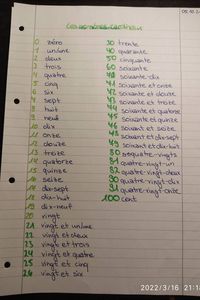 0 zéro
1 un/une
2 deux
3 trois
4 quatre
5 cinq
6 six
7 sept
8 huit
9 neuf
10 dix
11 onze
12 douze
13 treize
14 quatorze
15 quinze
16 seize
17 dix-sept
18 dix-huit
19 dix-neuf
20 vingt
21 vingt et un/une
22 vingt et deux
23 vingt et trois
24 vingt et quatre
25 vingt et cinq
26 vingt et six
30 trente
40 quarante
50 cinquante
60 soixante
soixante-dix
soixante et onze
soixante et douze
soixante et treize
soixante et quatorze
soixante et quinze
soixante et seize
80
81 quatre-vingt-un
82 quatre-vingt-deux
90 quatre-vingt-dix
91 quatre-vingt-onze
100 cent
2022/3/16 21:18